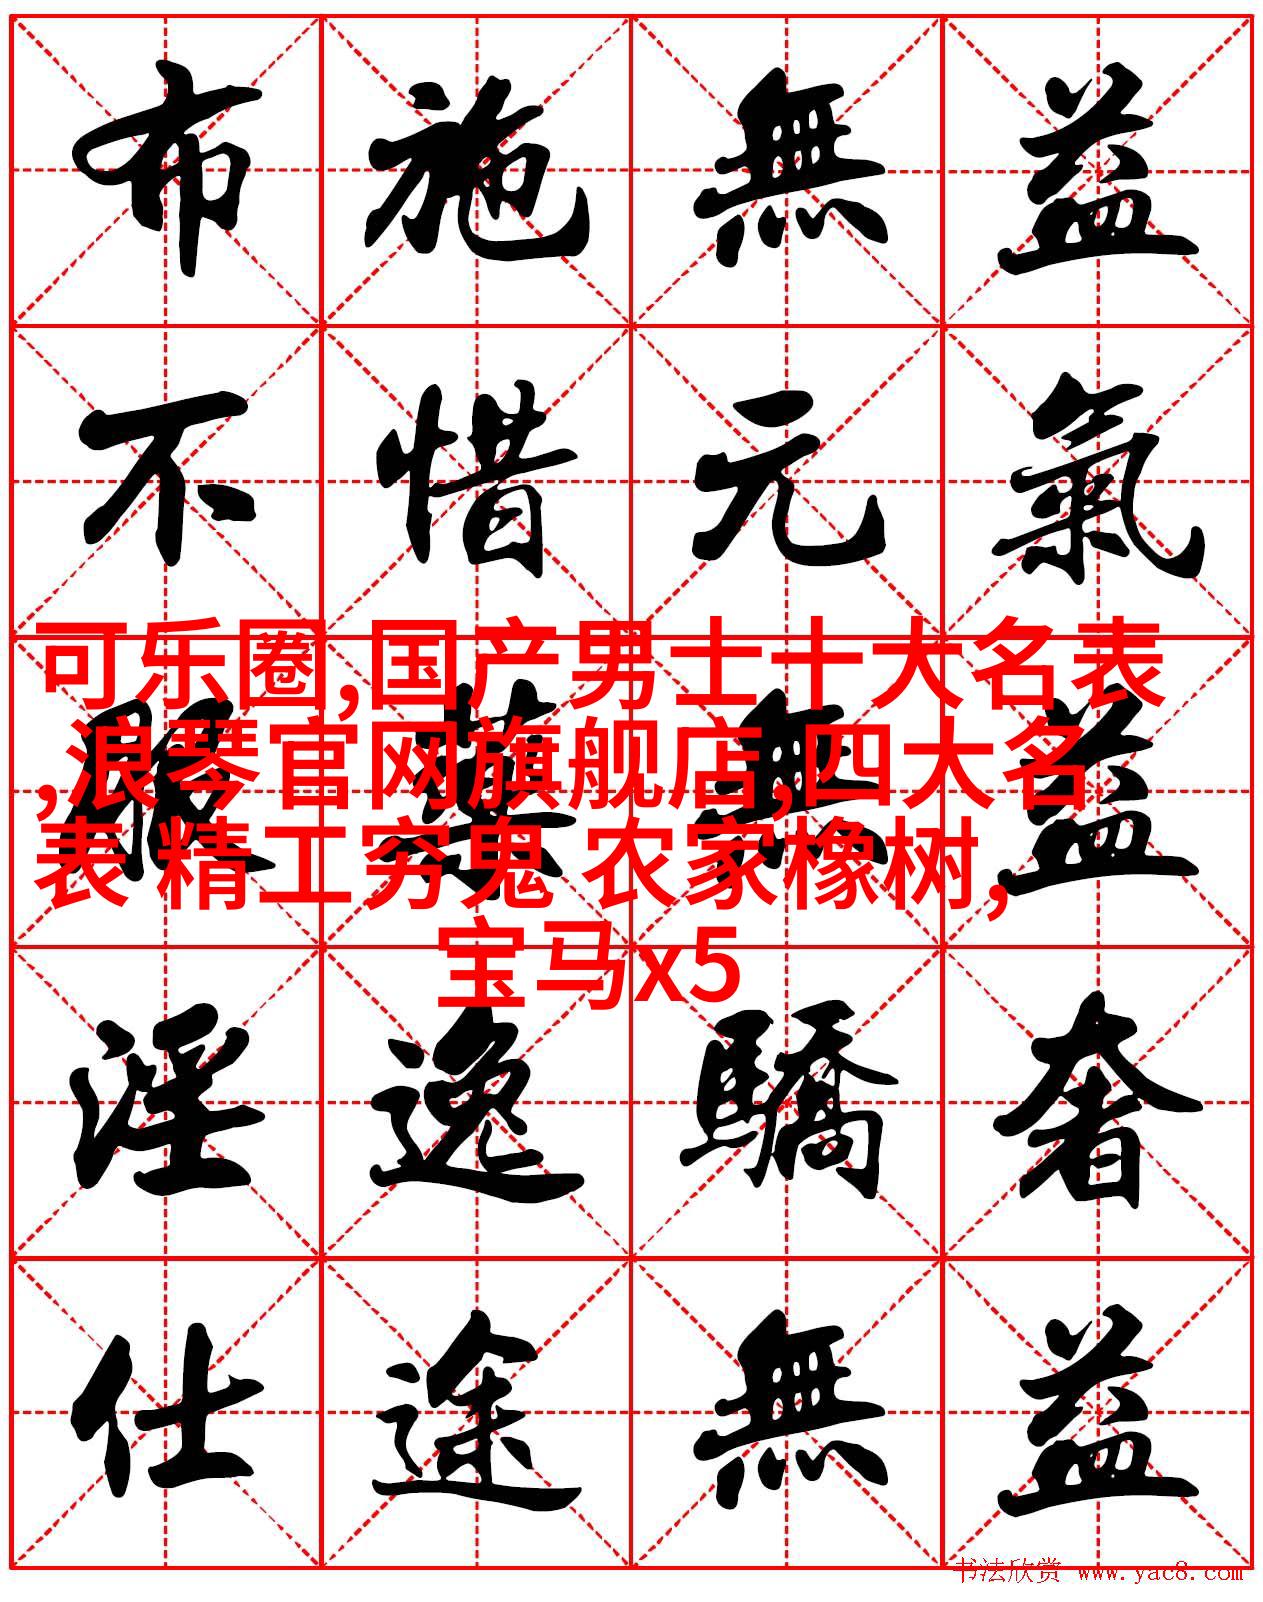 布施無益
不惜元氣
可乐圈,国产男士十大名表
,浪琴官网旗舰店,四大名
表 精工穷鬼 农家橡树,
宝马x5
服藥無益
淫逸驕奢
仕途無益
书法欣赏 www.yac8.com